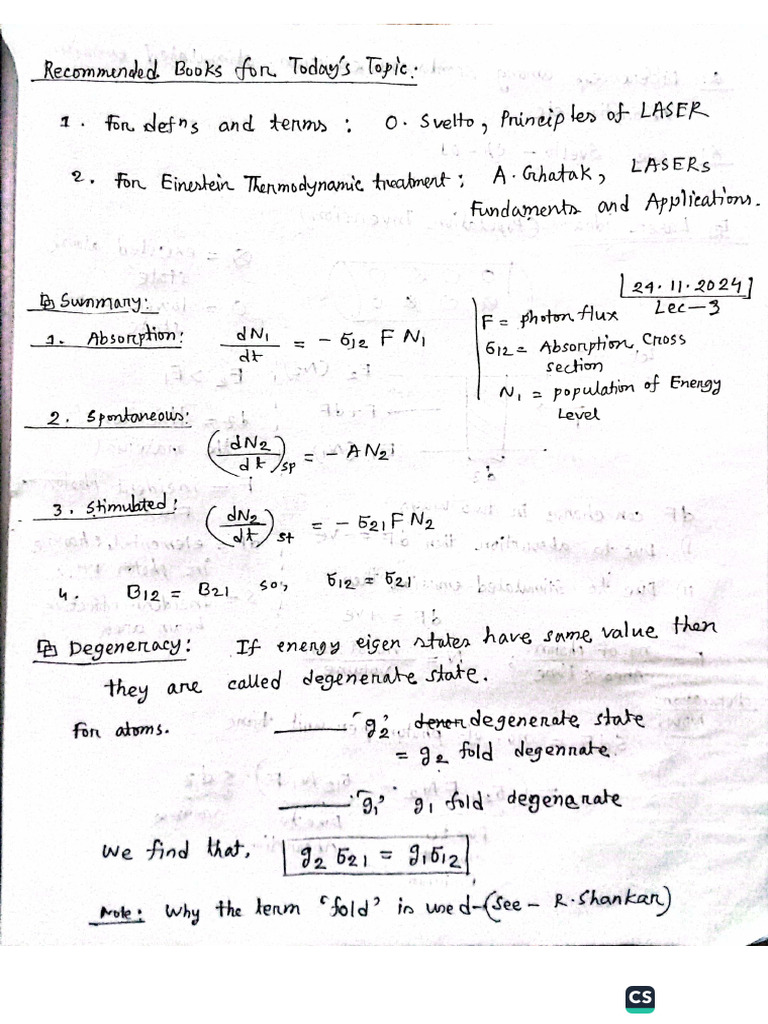 Recommended Books for Today's Topic:
1. For defns and terms: O. Svelto, Principles of LASER
2. For Einestein Thermodynamic treatment: A. Ghatak, LASERs
Fundaments and Applications.
24.11.2024
Lec-3
Summary:
F = photon flux
1. Absorption: dN₁/dt = - σ₁₂ F N₁
σ₁₂ = Absorption, Cross
section
N₁ = population of Energy
Level
2. Spontaneous:
(dN₂/dt)sp = - A N₂;
3. Stimulated: (dN₂/dt)st = - σ₂₁ F N₂
4. B₁₂ = B₂₁ so, σ₁₂ = σ₂₁
Degeneracy: If energy eigen states have same value then
they are called degenerate state.
For atoms. 'g₂' degenerate state
= g₂ fold degennrate.
'g₁' g₁ fold degenarate
We find that, g₂ σ₂₁ = g₁ σ₁₂
Note: Why the term 'fold' is used-(See - R. Shankar)
CS